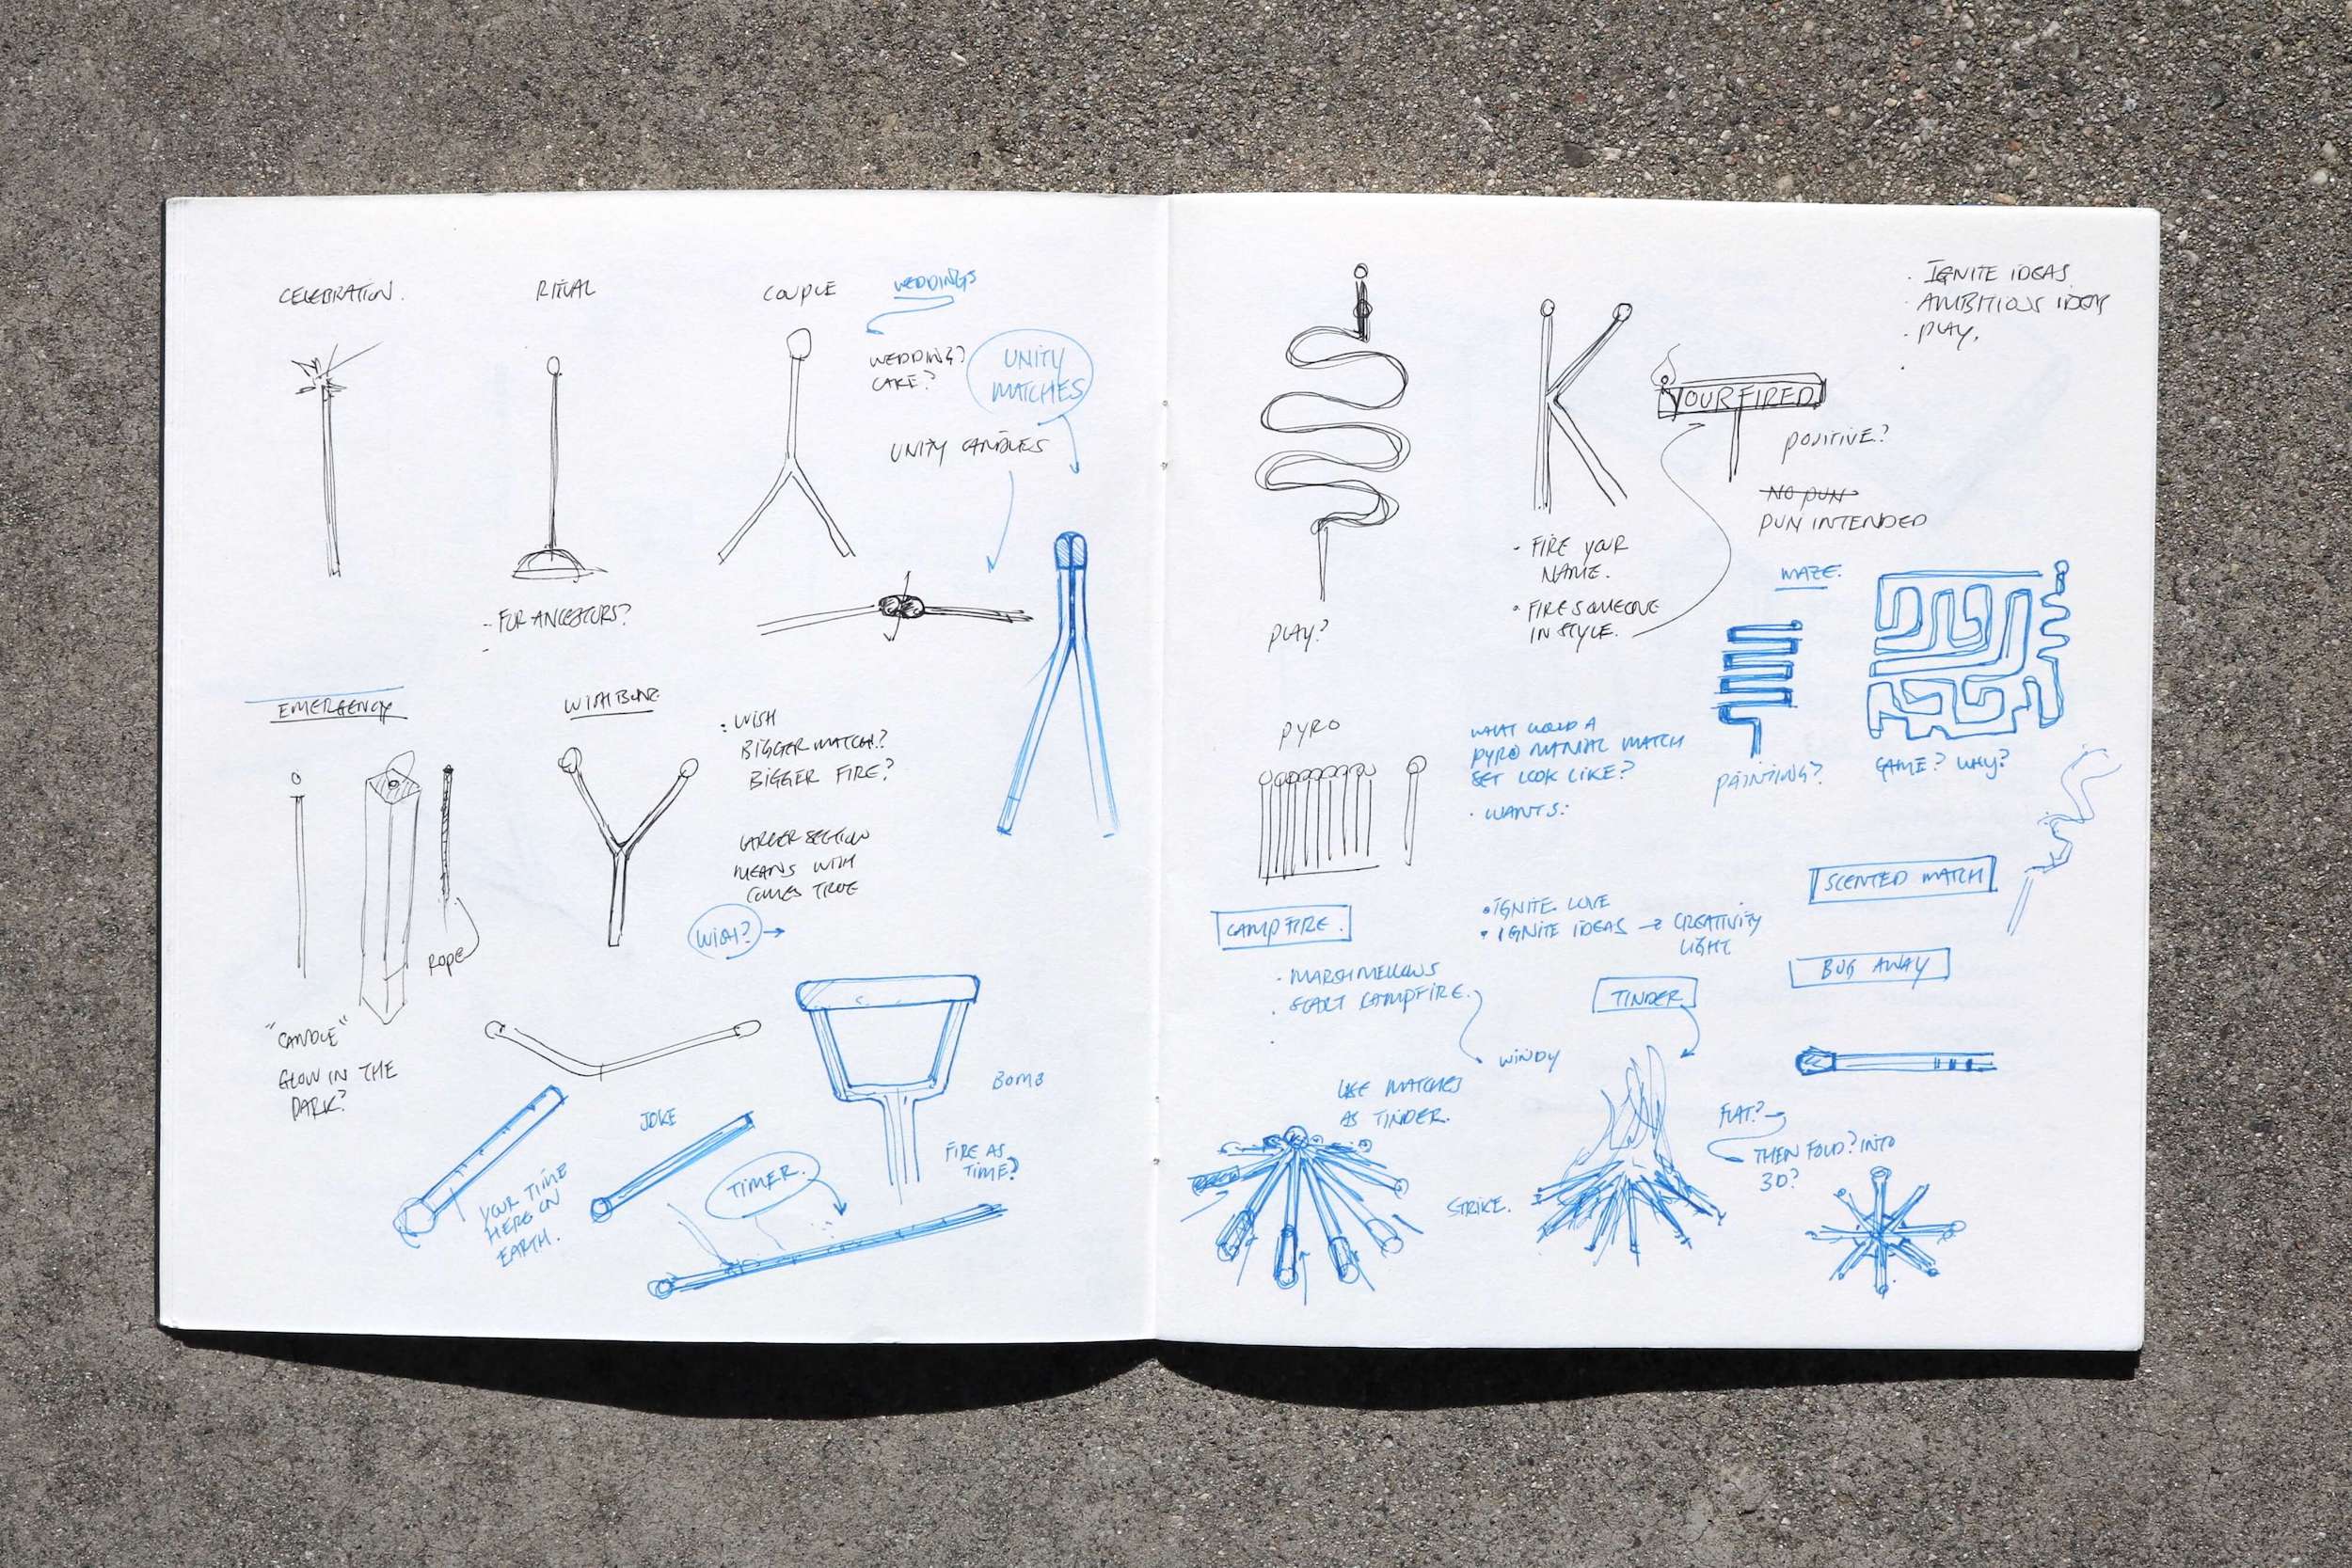 CELEBRATION.
RITUAL
COUPLE
WEDDINGS
WEDDING?
CAKE?
UNITY
MATCHES
UNITY CANDLES
- FOR ANCESTORS?
-
EMERGENCY
WISHBONE
: WISH
BIGGER MATCH?
BIGGER FIRE?
LARGER SECTION
MEANS WISH
COMES TRUE
WISH?
ROPE
"CANDLE"
GLOW IN THE
DARK?
YOUR TIME
HERE ON
EARTH.
JOKE
TIMER.
BOMB
FIRE AS
TIME?
· IGNITE IDEAS
· AMBITIOUS IDEAS
· PLAY.
·
PLAY?
K
YOUR FIRED
POSITIVE?
NO PUN
PUN INTENDED
· FIRE YOUR
NAME.
· FIRE SOMEONE
IN STYLE.
MAZE.
PAINTING?
GAME? WHY?
PYRO
WHAT WOULD A
PYRO MANIAC MATCH
SET LOOK LIKE?
· WANTS:
SCENTED MATCH
CAMPFIRE.
· IGNITE LOVE
· IGNITE IDEAS → CREATIVITY
LIGHT
BUG AWAY
· MARSHMELLOWS
· START CAMPFIRE.
·
TINDER
WINDY
USE MATCHES
AS TINDER.
STRIKE.
FLAT?
THEN FOLD? INTO
3D?